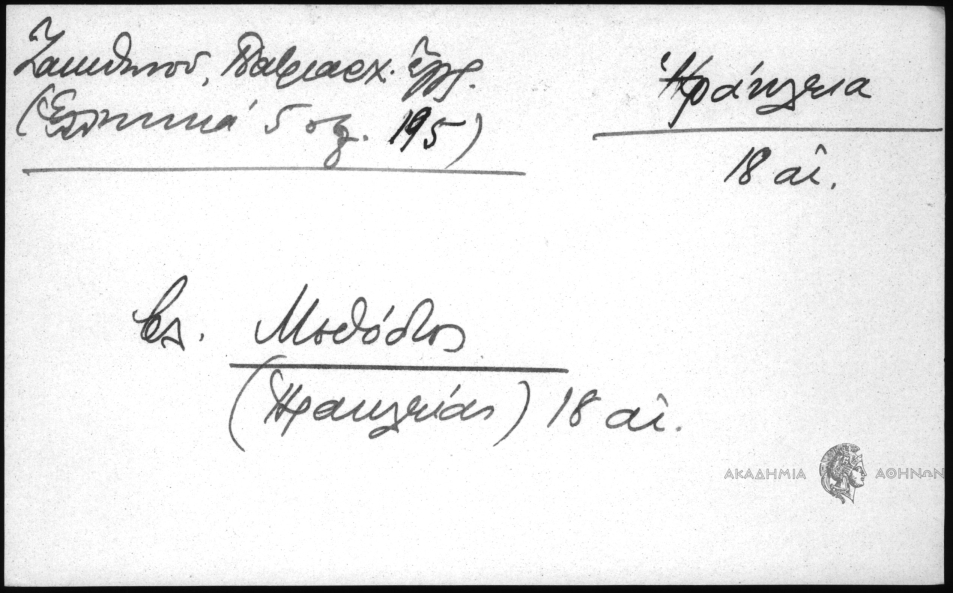 Ζακυθηνοῦ, Πατριαρχ. ἔγγ.
(Ἑλληνικά 5 σελ. 195)
Ἡράκλεια
18 αἰ.
βλ. Μεθόδιος
(Ἡρακλείας) 18 αἰ.
ΑΚΑΔΗΜΙΑ ΑΘΗΝΩΝ